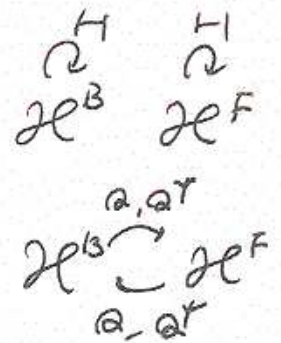 H H
ℋᴮ ℋꟳ
Q, Q†
ℋᴮ ℋꟳ
Q, Q†